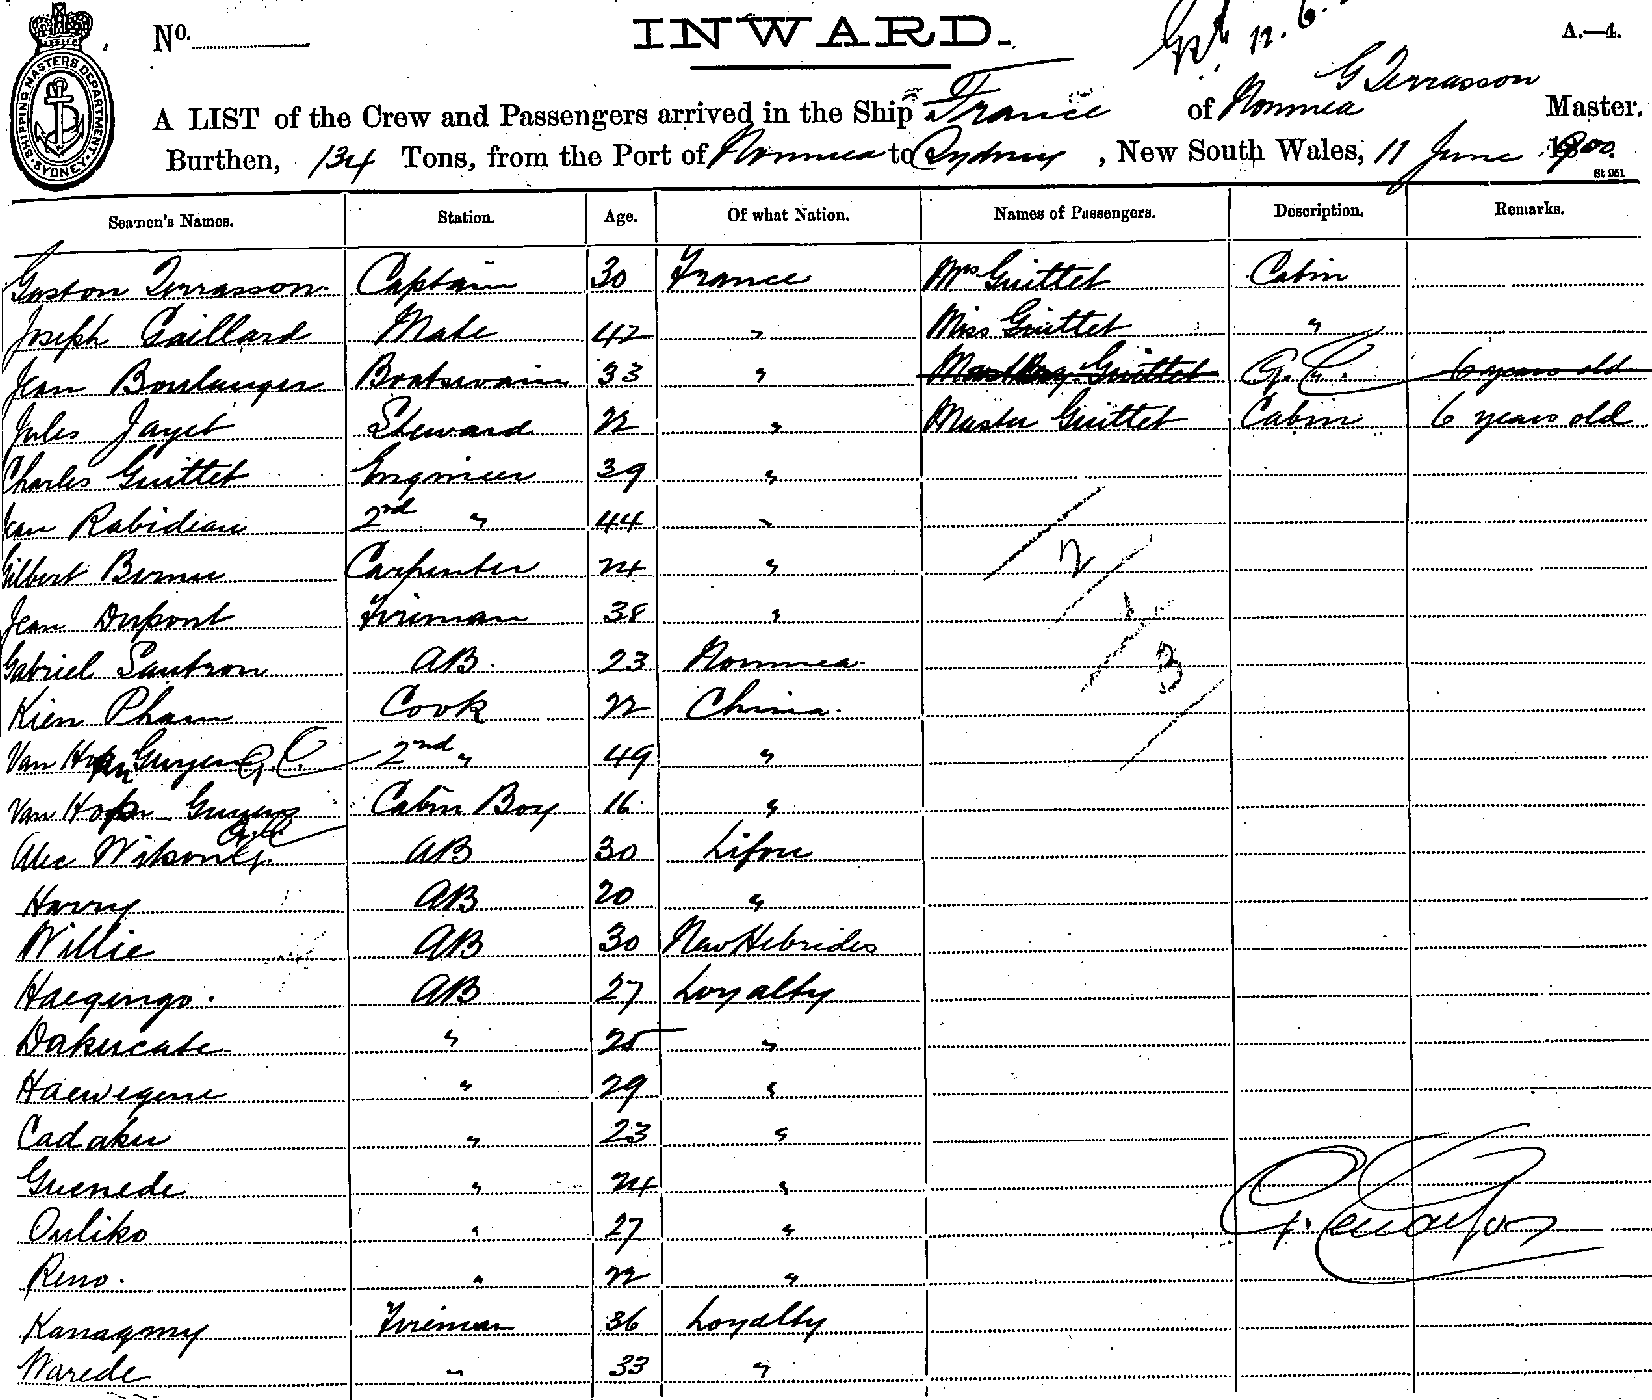 No. INWARD. A.—4.
SHIPPING MASTERS DEPARTMENT SYDNEY
G Terrasson
A LIST of the Crew and Passengers arrived in the Ship France of Noumea Master.
Burthen, 134 Tons, from the Port of Noumea to Sydney, New South Wales, 11 June 1900.
St 961
Seamen's Names. Station. Age. Of what Nation. Names of Passengers. Description. Remarks.
Gaston Terrasson Captain 30 France Mrs Guittet Cabin
Joseph Gaillard Mate 42 " Miss Guittet "
Jean Boulanger Boatswain 33 " Guittet 6 years old
Jules Jayet Steward 22 " Master Guittet Cabin 6 years old
Charles Guittet Engineer 39 "
Jean Rabidian 2nd " 44 "
Gilbert 24 Carpenter "
Jean Dupont Fireman 38 "
Gabriel Sautron AB. 23 Noumea
Kien Pham Cook 22 China.
Van 2nd " 49 "
Van Cabin Boy 16 "
Alec Wilson AB 30 Lifou
Harry AB 20 "
Willie AB 30 New Hebrides
Haegingo. AB 27 Loyalty
Dakucate " 25 "
Haewegene " 29 "
Cadaku " 23 "
Guenede " 24 "
Ouliko " 27 "
Reno. " 22 "
Kanagony Fireman 36 Loyalty
Warede " 33 "